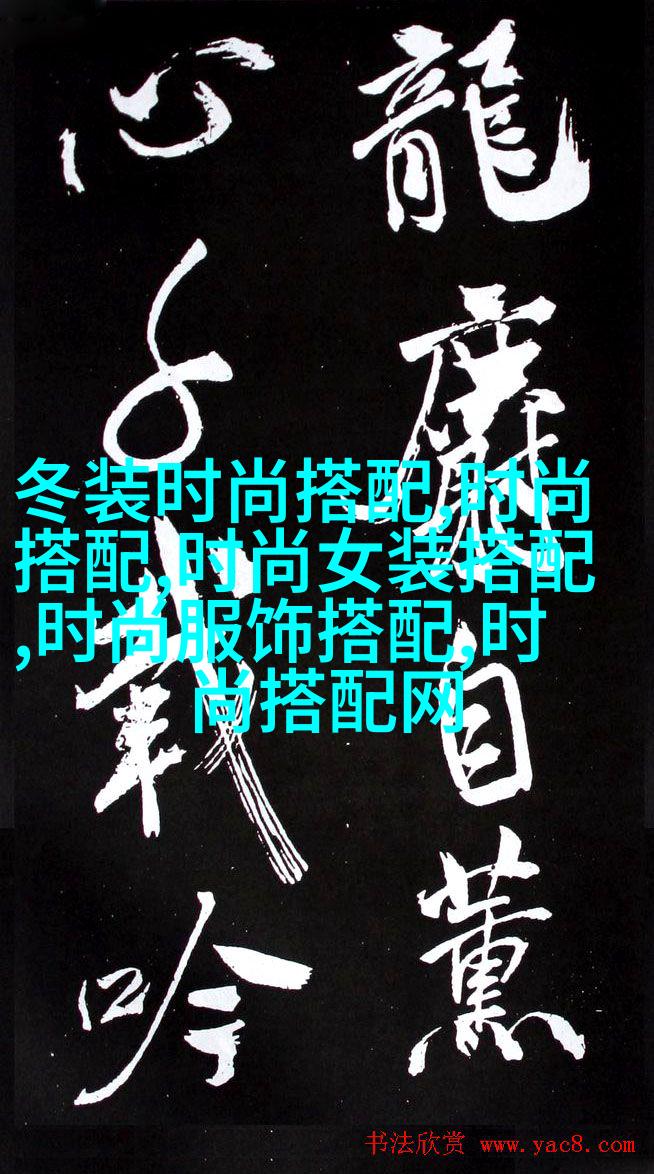 龍自薰
心千載吟
冬装时尚搭配,时尚
搭配,时尚女装搭配
,时尚服饰搭配,时
尚搭配网
书法欣赏 www.yac8.com